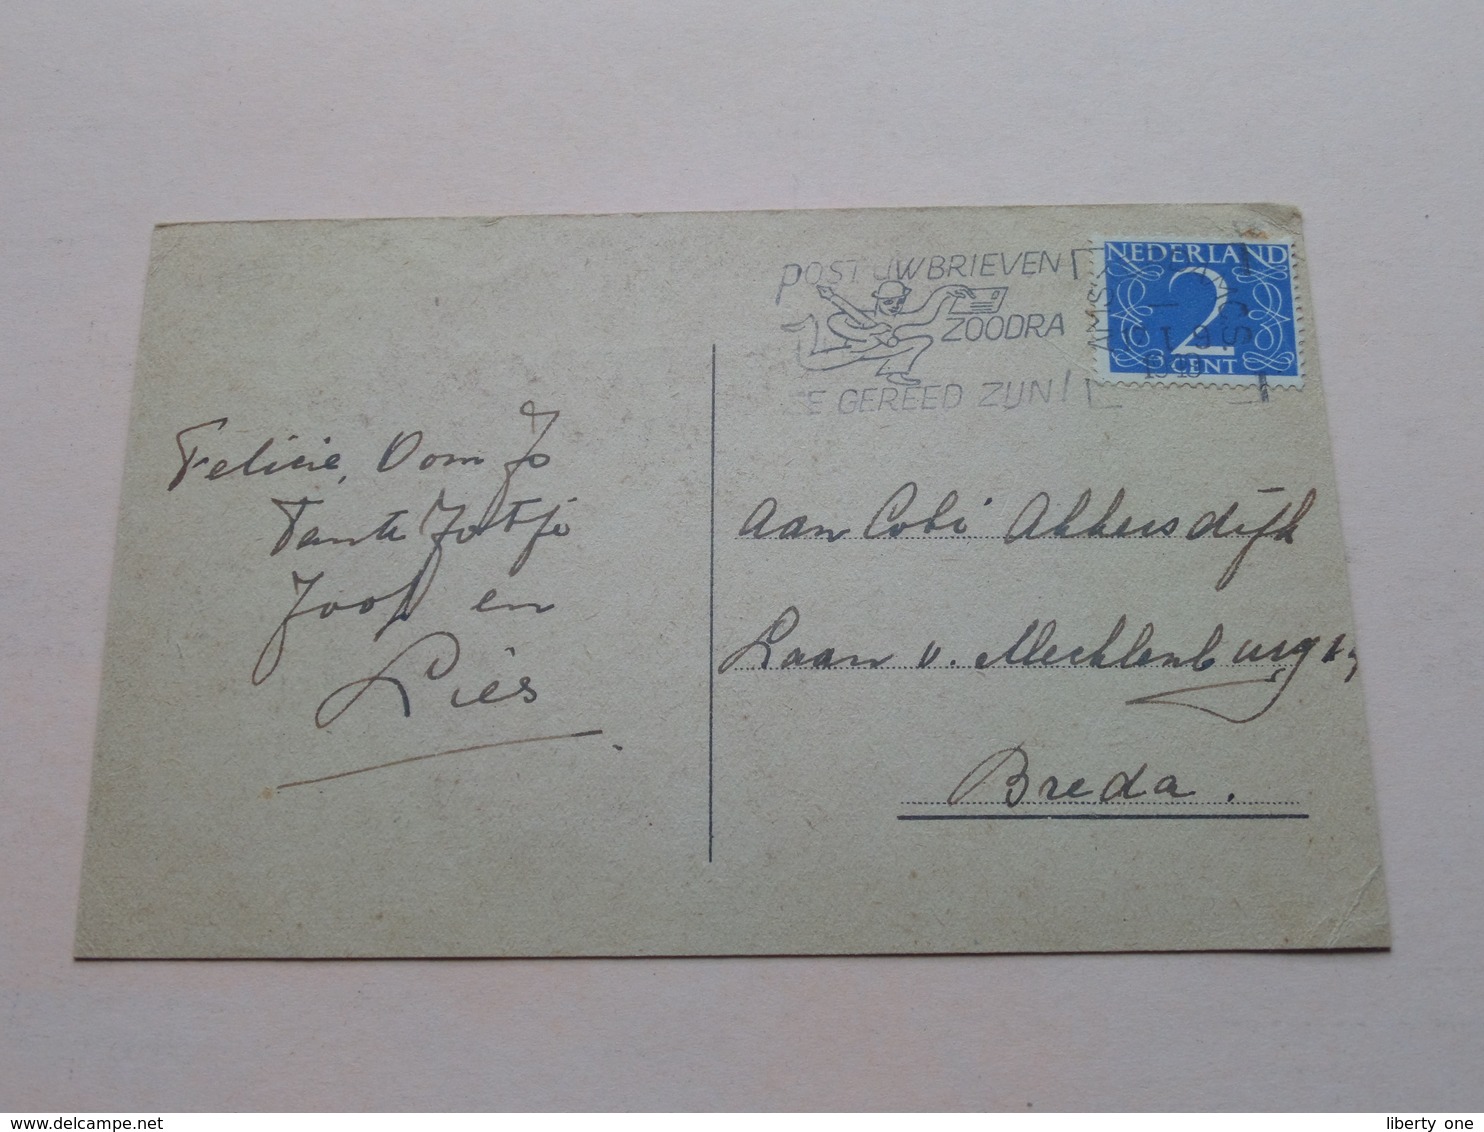 POST UW BRIEVEN
ZOODRA
ZE GEREED ZIJN!
NEDERLAND
2
CENT
Felicie, Oom Jo
Tante Jobtje
Joop en
Lies
Aan Cobi Akkersdijk
Laan v. Mecklenburg
Breda.
www.delcampe.net
liberty one